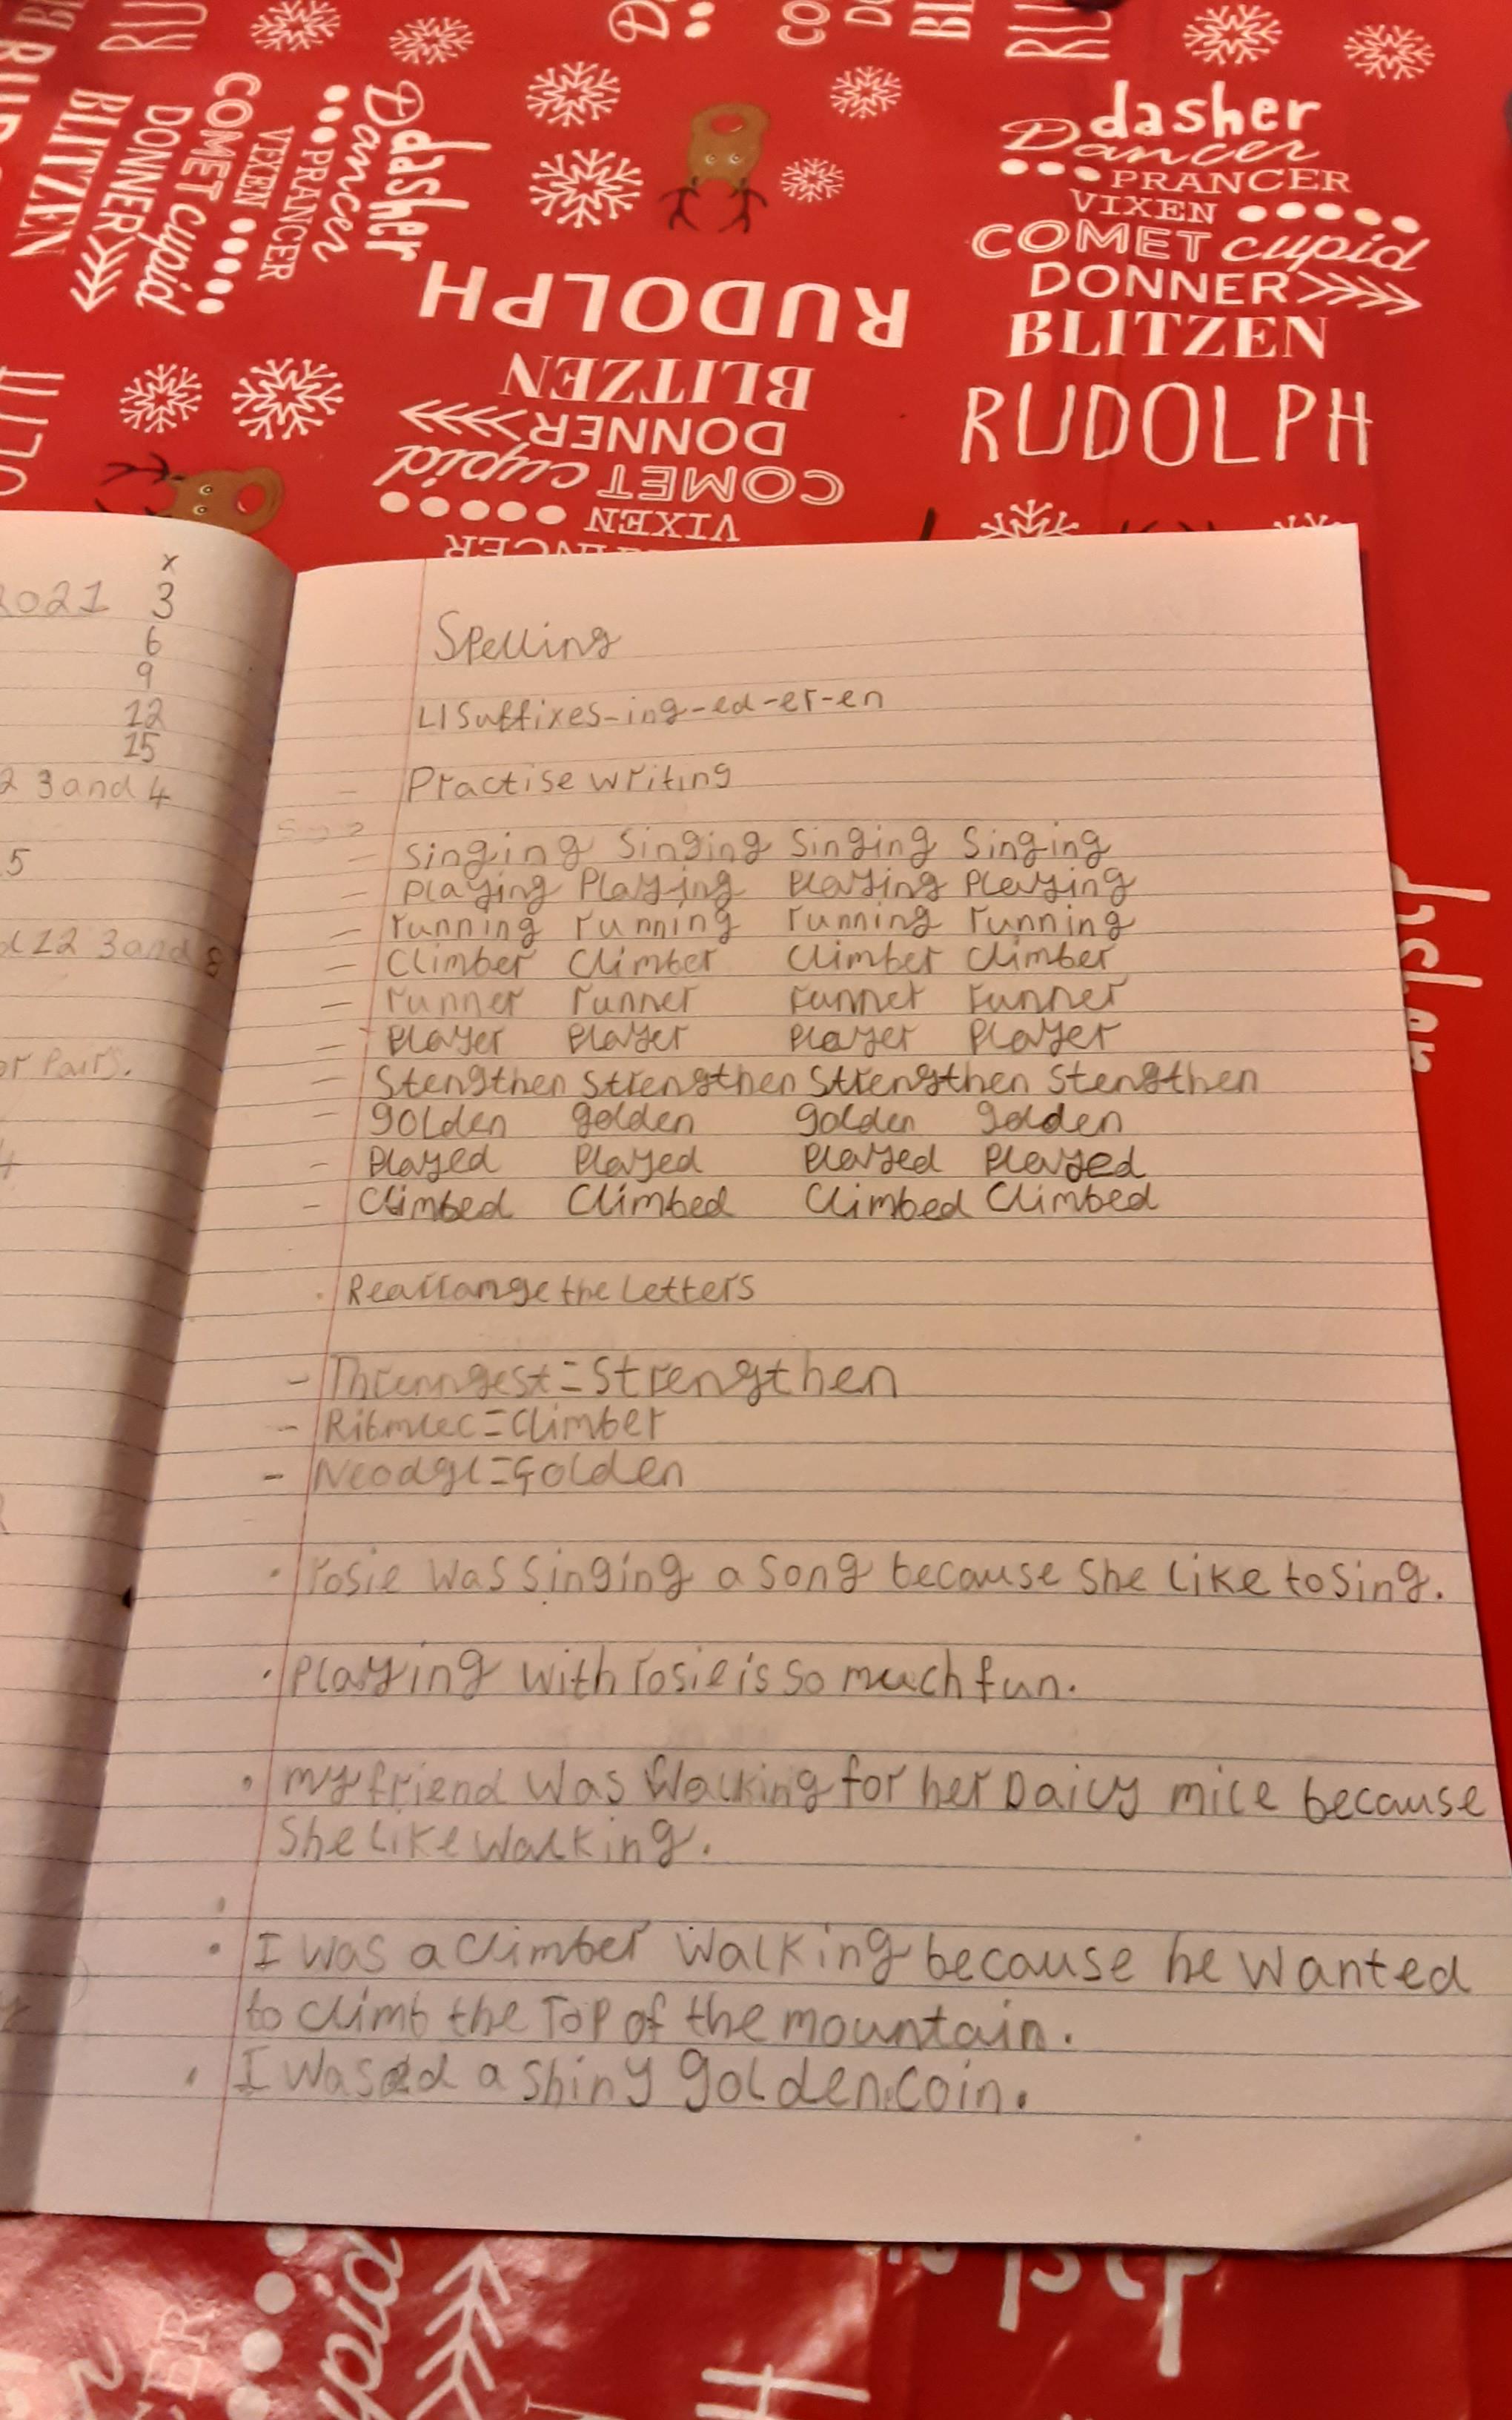 dasher
Dancer
PRANCER
VIXEN
COMET cupid
DONNER
BLITZEN
dasher
Dancer
PRANCER
VIXEN
COMET cupid
DONNER
BLITZEN
RUDOLPH
RUDOLPH
BLITZEN
DONNER
COMET cupid
VIXEN
x
2021 3
6
9
12
15
2 3 and 4
5
d 12 3 and 8
or Pairs.
Spelling
LI Suffixes-ing-ed-er-en
Practise writing
Singing Singing Singing Singing
Playing Playing Playing Playing
running running running running
Climber Climber Climber Climber
runner runner runner runner
Player Player Player Player
Stengthen Strengthen Strengthen Stengthen
golden golden golden golden
Played Played Played Played
Climbed Climbed Climbed Climbed
Rearrange the Letters
- Threnngest=Strengthen
- Ribmlec=Climber
- Neodgl=Golden
• rosie was singing a song because she like to sing.
• Playing with rosie is so much fun.
• my friend was walking for her Daily mile because
she like walking.
• I was a climber walking because he wanted
to climb the Top of the mountain.
• I was a shiny golden coin.